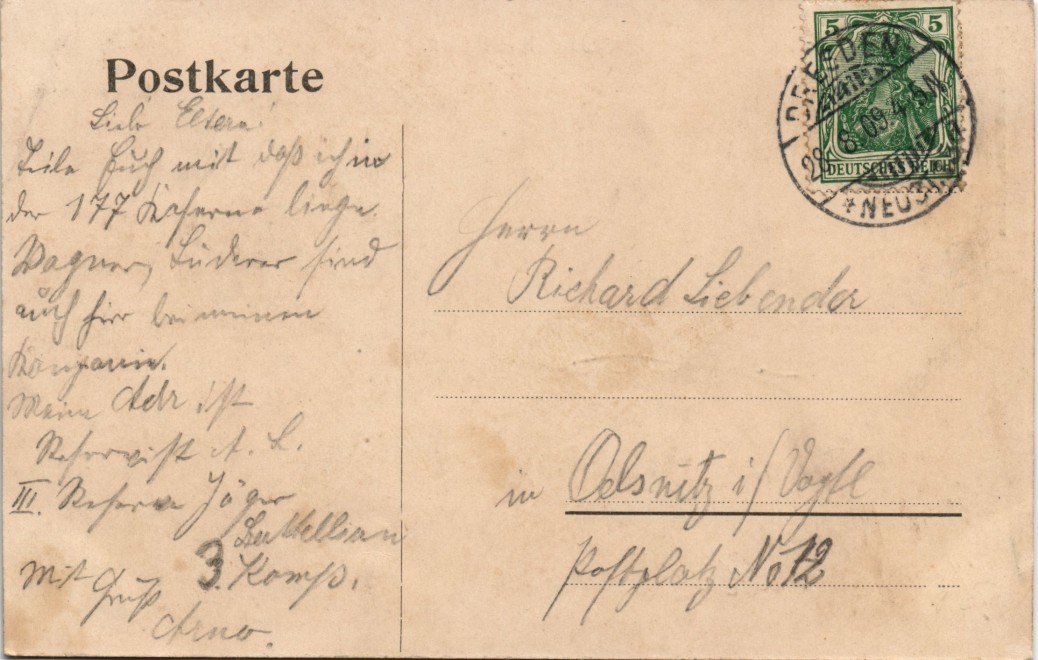 Postkarte
Liebe Eltern
Teile Euch mit daß ich in
der 177 Kaserne liege.
Wagner, Luderer sind
auch hier bei meinen
Kompanie.
Meine Adr ist
Reservist A. L.
III. Reserve Jäger
Battellian
3. Komp.
Mit Gruß
Arno.
5 5
DEUTSCHES REICH
DRESDEN
28.8.09.4-5N
*NEUST
Herrn
Richard Liebender
in Oelsnitz i/Vogtl
Postplatz No 12